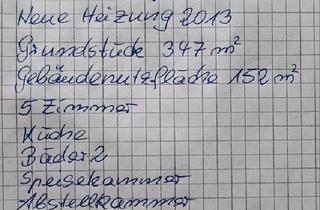 Neue Heizung 2013
Grundstück 347 m²
Gebäudenutzfläche 152 m²
5 Zimmer
Küche
Bäder 2
Speisekammer
Abstellkammer